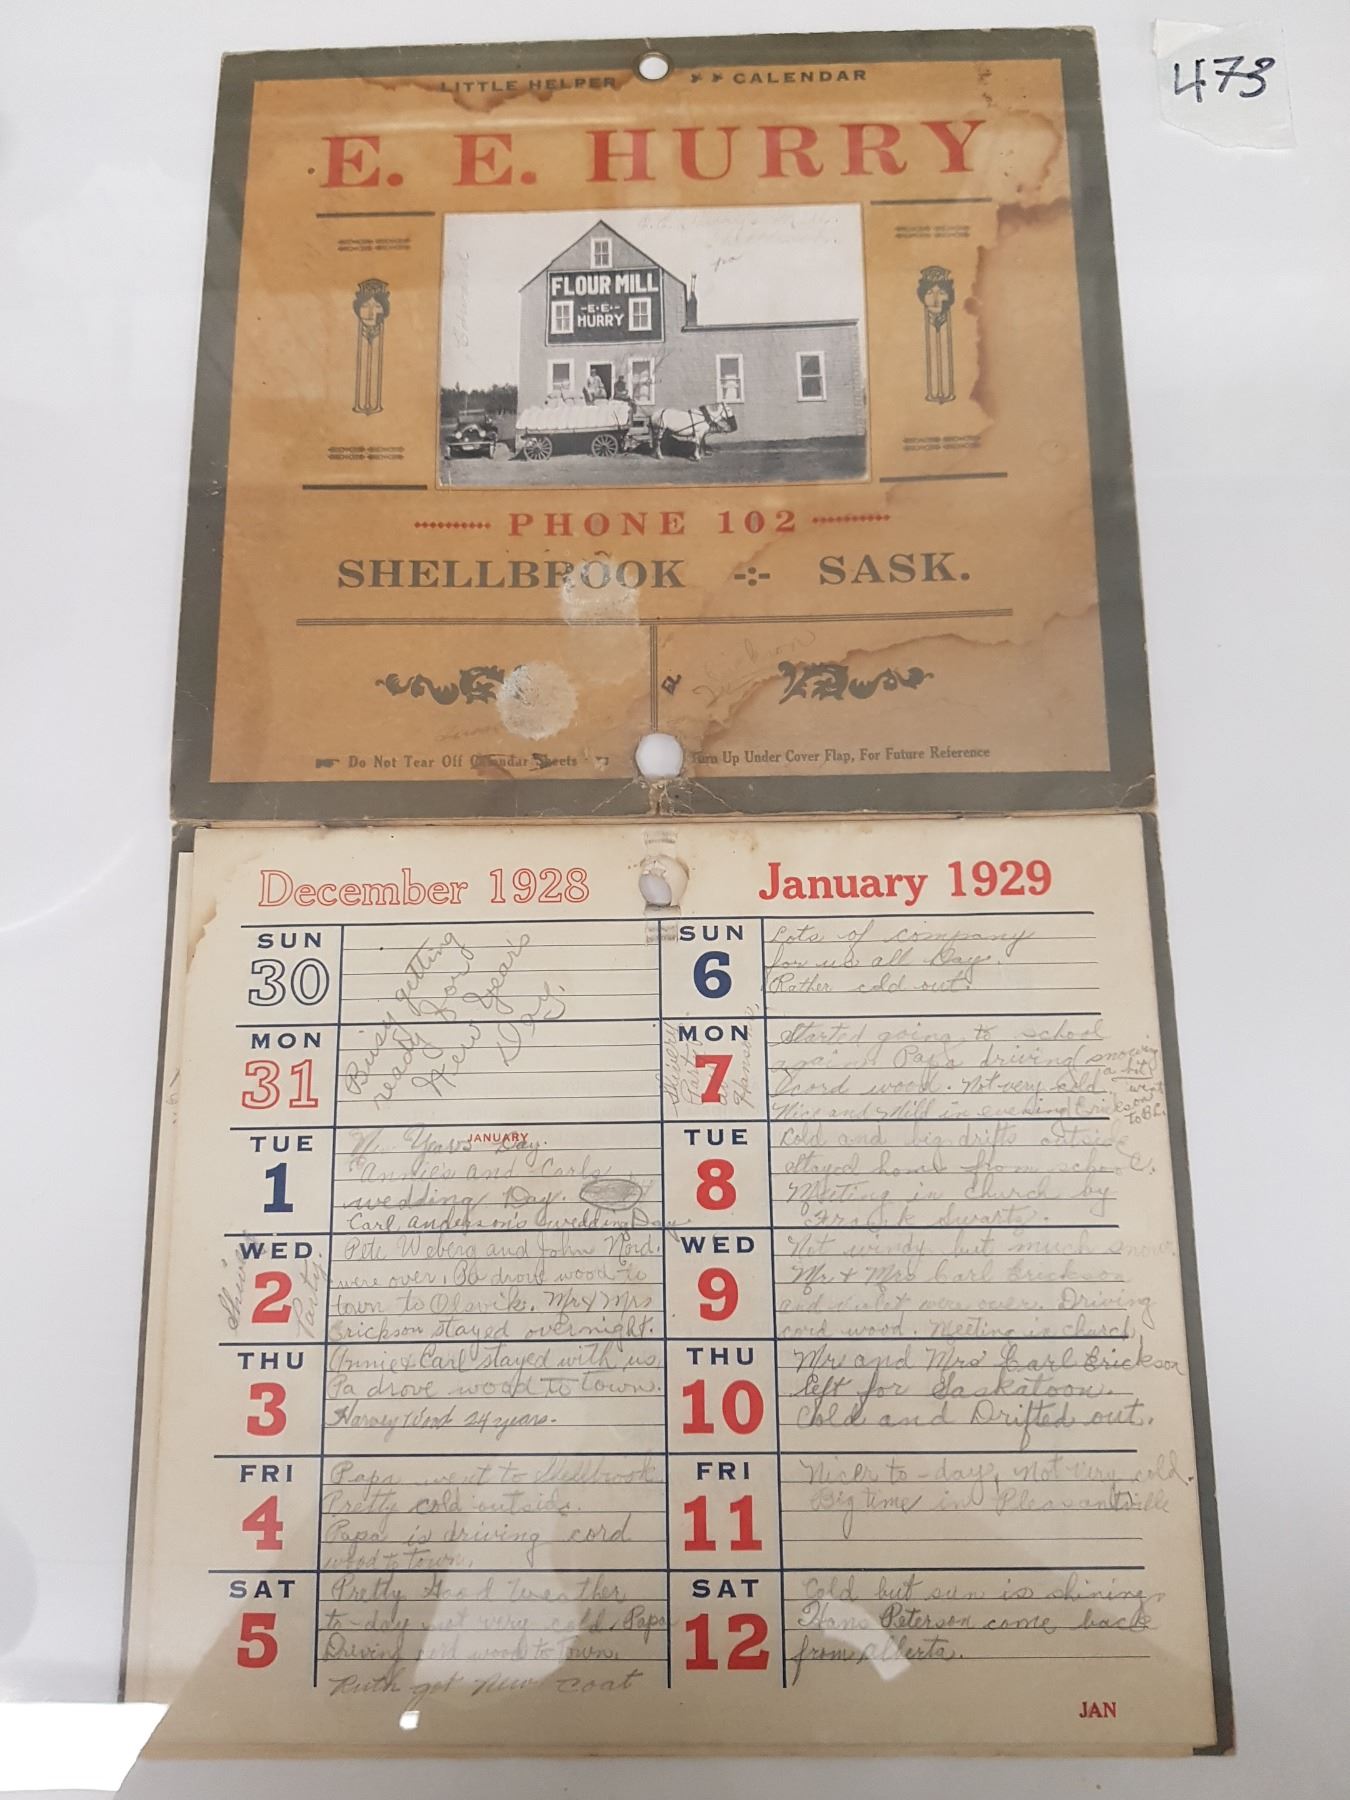 473
LITTLE HELPER CALENDAR
E. E. HURRY
FLOUR MILL
-E·E-
HURRY
PHONE 102
SHELLBROOK -:- SASK.
Erickson
Do Not Tear Off Calendar Sheets
Turn Up Under Cover Flap, For Future Reference
December 1928
SUN
30
MON
31
Busy getting
ready for
New Year's
Day.
TUE
1
JANUARY
New Years Day.
Annie's and Carls
wedding Day.
Carl Anderson's wedding Day
WED.
2
Party
Pete Weberg and John Nord.
were over. Pa drove wood to
town to Olsvik. Mr & Mrs
Erickson stayed overnight.
THU
3
Annie & Carl stayed with us,
Pa drove wood to town.
Harvey Wood 24 years.
FRI
4
Papa went to Shellbrook
Pretty cold outside.
Papa is driving cord
wood to town.
SAT
5
Pretty Good Weather
to-day not very cold. Papa
Driving cord wood to town.
Ruth got New Coat
January 1929
SUN
6
Lots of company
for us all Day.
Rather cold out.
MON
7
Party
Hanson
Started going to school
again. Papa driving snowing a bit
cord wood. Not very cold.
Nice and Mild in evening Erickson went to B.C.
TUE
8
Cold and big drifts outside
Stayed home from school.
Meeting in church by
Frank Swartz.
WED
9
Not windy but much snow.
Mr + Mrs Carl Erickson
and Violet were over. Driving
cord wood. Meeting in church.
THU
10
Mr and Mrs Carl Erickson
left for Saskatoon.
Cold and Drifted out.
FRI
11
Nicer to-day, Not very cold.
Big time in Pleasantville
SAT
12
Cold but sun is shining
Hans Peterson come back
from Alberta.
JAN